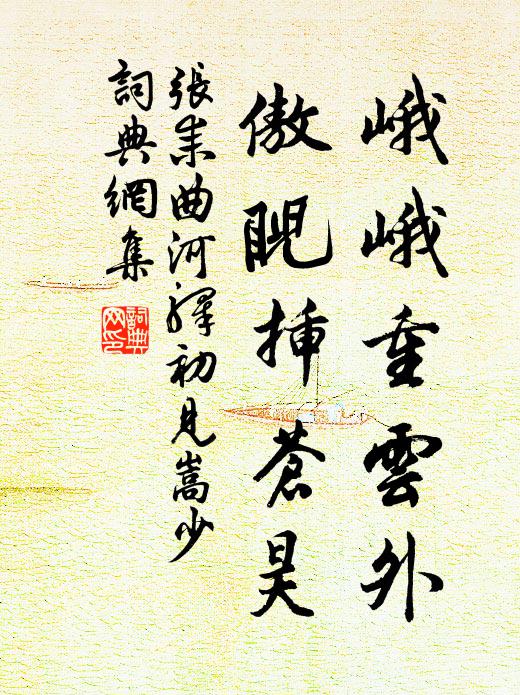 峨峨重雲外
傲睨揷蒼昊
張耒曲河驛初見嵩少
詞典網集
詞典
网印